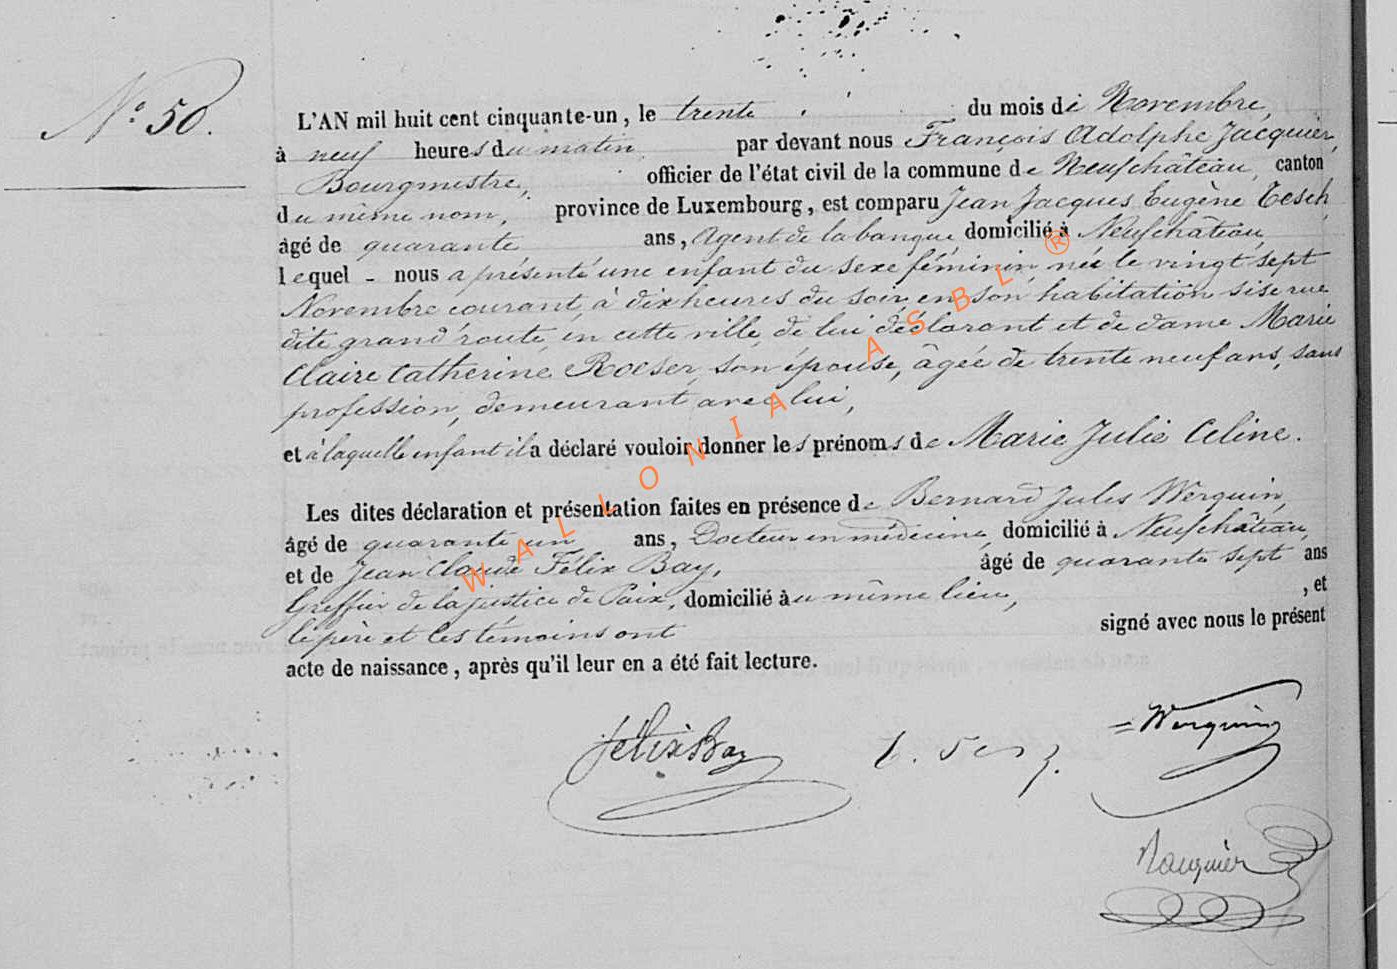 N.° 50.
L'AN mil huit cent cinquante-un, le trente du mois de Novembre,
à neuf heures du matin par devant nous François Adolphe Jacquier,
Bourgmestre, officier de l'état civil de la commune de Neufchâteau, canton
du même nom, province de Luxembourg, est comparu Jean Jacques Eugène Tesch,
âgé de quarante ans, Agent de la banque, domicilié à Neufchâteau,
lequel - nous a présenté une enfant du sexe féminin, née le vingt sept
Novembre courant, à dix heures du soir, en son habitation sise rue
dite grand'route, en cette ville, de lui déclarant et de dame Marie
Claire Catherine Roeser, son épouse, âgée de trente neuf ans, sans
profession, demeurant avec lui,
et à laquelle enfant il a déclaré vouloir donner les prénoms de Marie Julie Celine.
Les dites déclaration et présentation faites en présence de Bernard Jules Werquin,
âgé de quarante un ans, Docteur en médecine, domicilié à Neufchâteau,
et de Jean Claude Félix Bay, âgé de quarante sept ans
Greffier de la justice de Paix, domicilié au même lieu, , et
le père et les témoins ont signé avec nous le présent
acte de naissance, après qu'il leur en a été fait lecture.
Felix Bay Werquin
Jacquier
WALLONIA ASBL ®